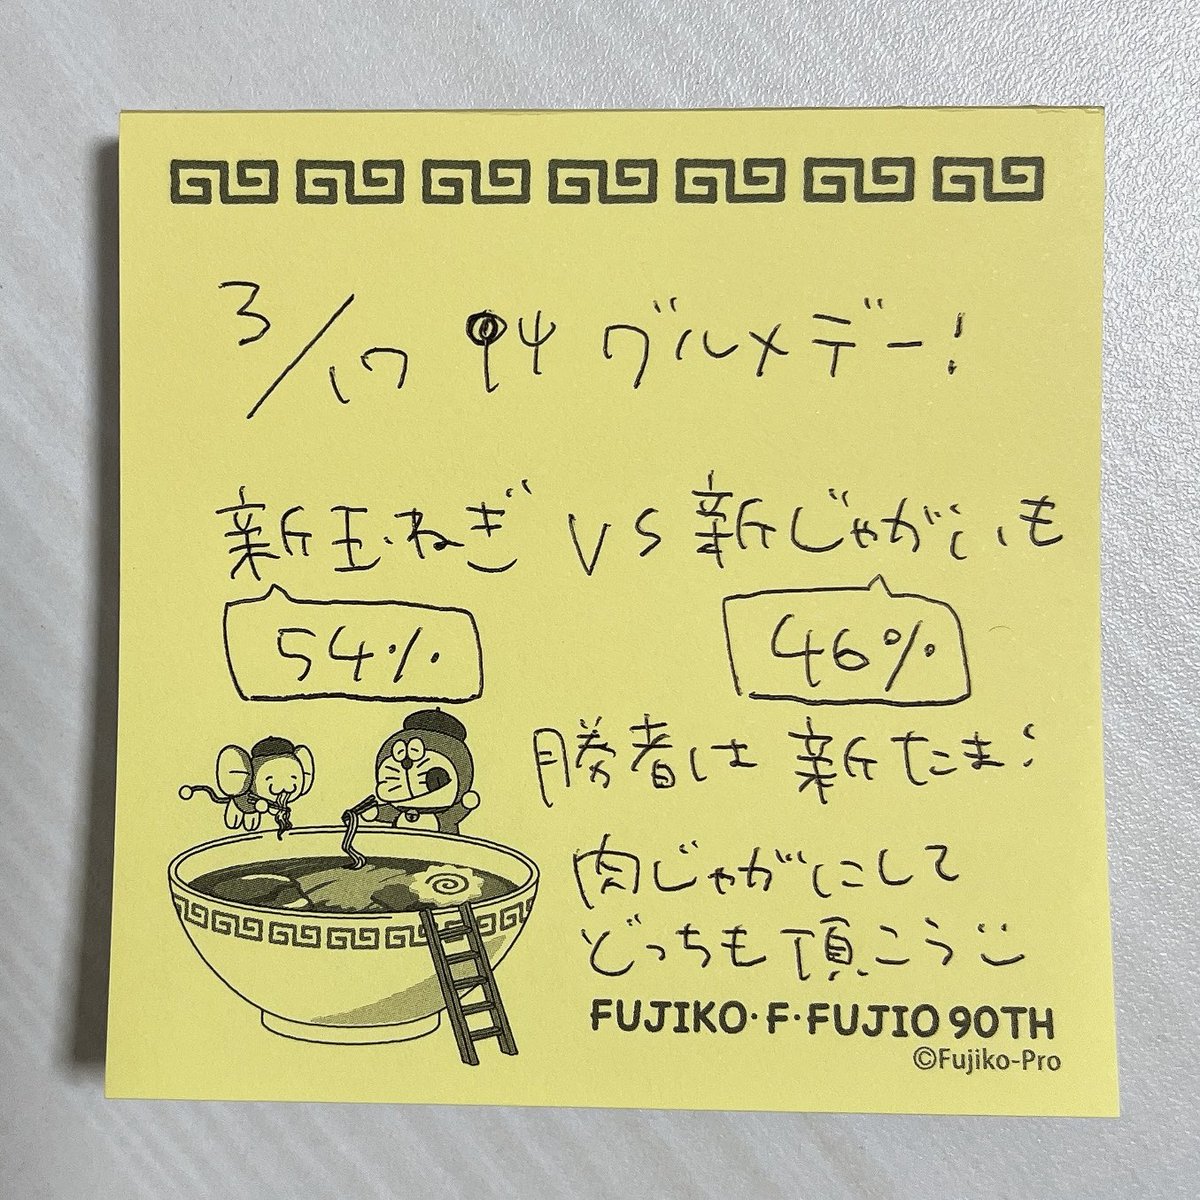 3/17 グルメデー!
新玉ねぎ VS 新じゃがいも
54% 46%
勝者は新たま!
肉じゃがにして
どっちも頂こう
FUJIKO・F・FUJIO 90TH
©Fujiko-Pro